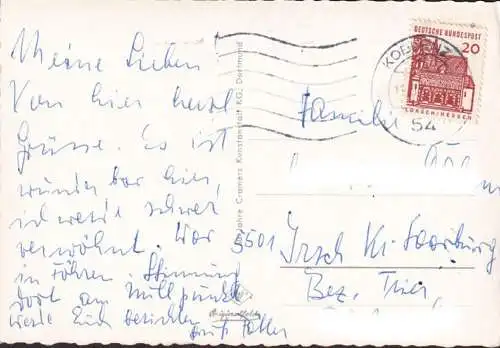 Meine Lieben
Von hier herzl
Grüsse. Es ist
wunderbar hier,
ich werde schwer
verwöhnt. War
in Föhren. Stimmung
dort am Nullpunkt
werde Euch berichten
Familie
5501 Irsch Kr. Saarburg
Bez. Trier
Jahre Cramers Kunstanstalt KG, Dortmund
DEUTSCHE BUNDESPOST
20
LORSCH/HESSEN
KOBLENZ
54